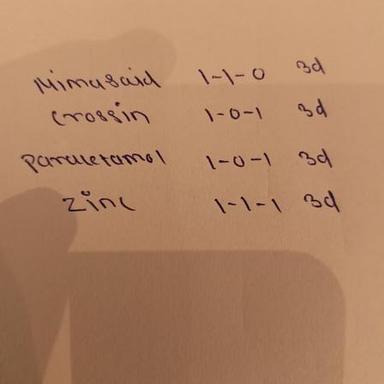 Nimusaid 1-1-0 3d
Crossin 1-0-1 3d
Paracetamol 1-0-1 3d
Zinc 1-1-1 3d